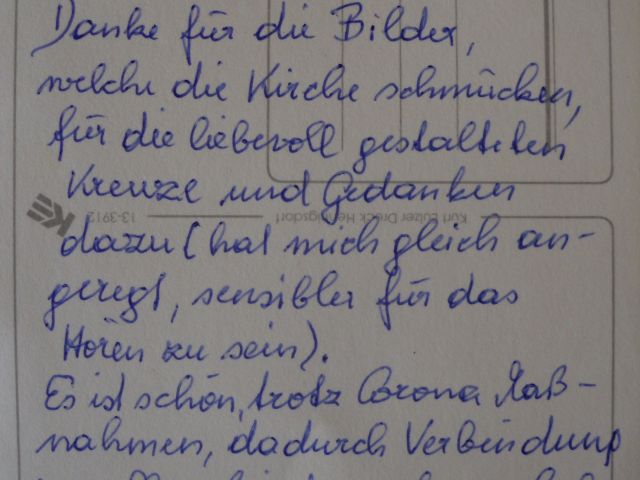 Danke für die Bilder,
welche die Kirche schmücken,
für die liebevoll gestalteten
Kreuze und Gedanken
13-3912 Kurt Eulzer Druck Hennigsdorf
dazu (hat mich gleich an-
geregt, sensibler für das
Hören zu sein).
Es ist schön, trotz Corona Maß-
nahmen, dadurch Verbindung